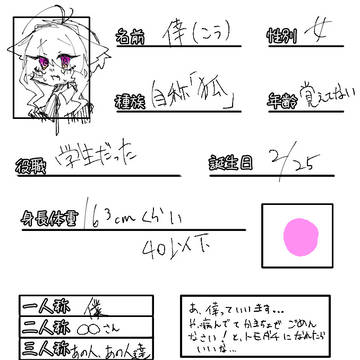 名前 倖(こう)
性別 女
種族 自称「狐」
年齢 覚えてない
役職 学生だった
誕生日 2/25
身長体重 163cmくらい
40以下
一人称 僕
二人称 ○○さん
三人称 あの人、あの人達
あ、倖っていいます...
や、病んでて
ごめん
なさい!と、トモダチになれたら
いいな...